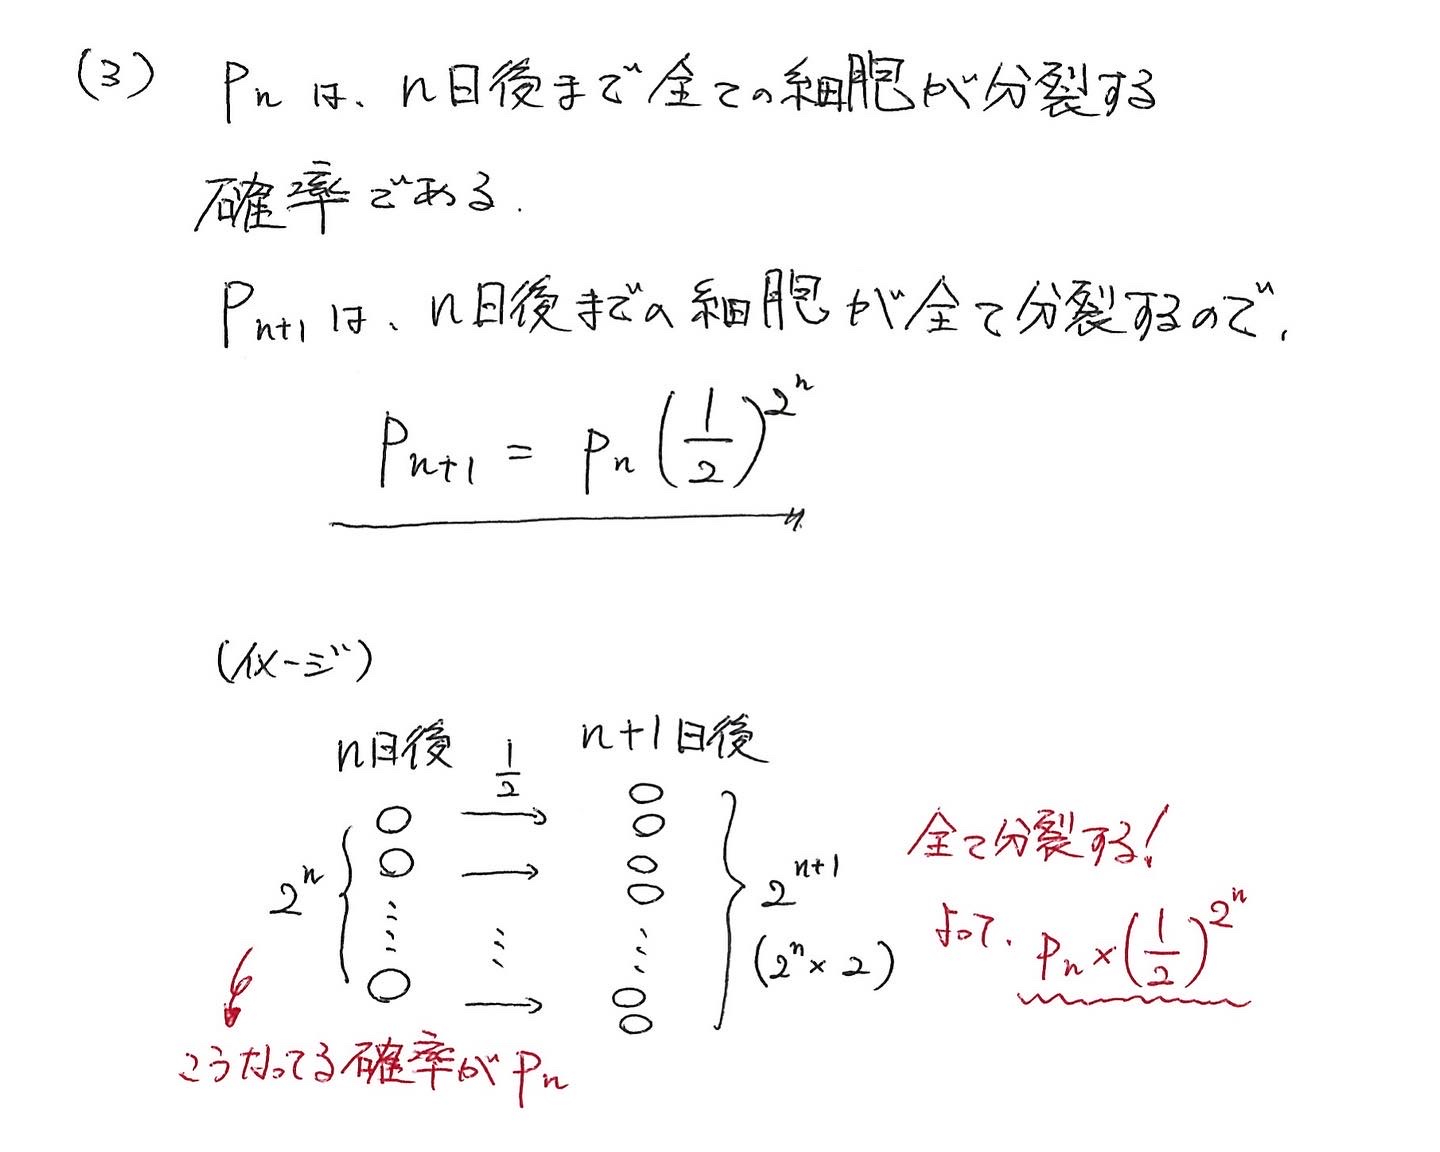 (3) Pn は、n日後まで全ての細胞が分裂する
確率である.
Pn+1 は、n日後までの細胞が全て分裂するので、
Pn+1 = Pn (1/2)^2^n
(イメージ)
n日後 1/2 n+1日後
2^n
2^n+1
(2^n × 2)
全て分裂する!
よって、Pn × (1/2)^2^n
こうなってる確率が Pn